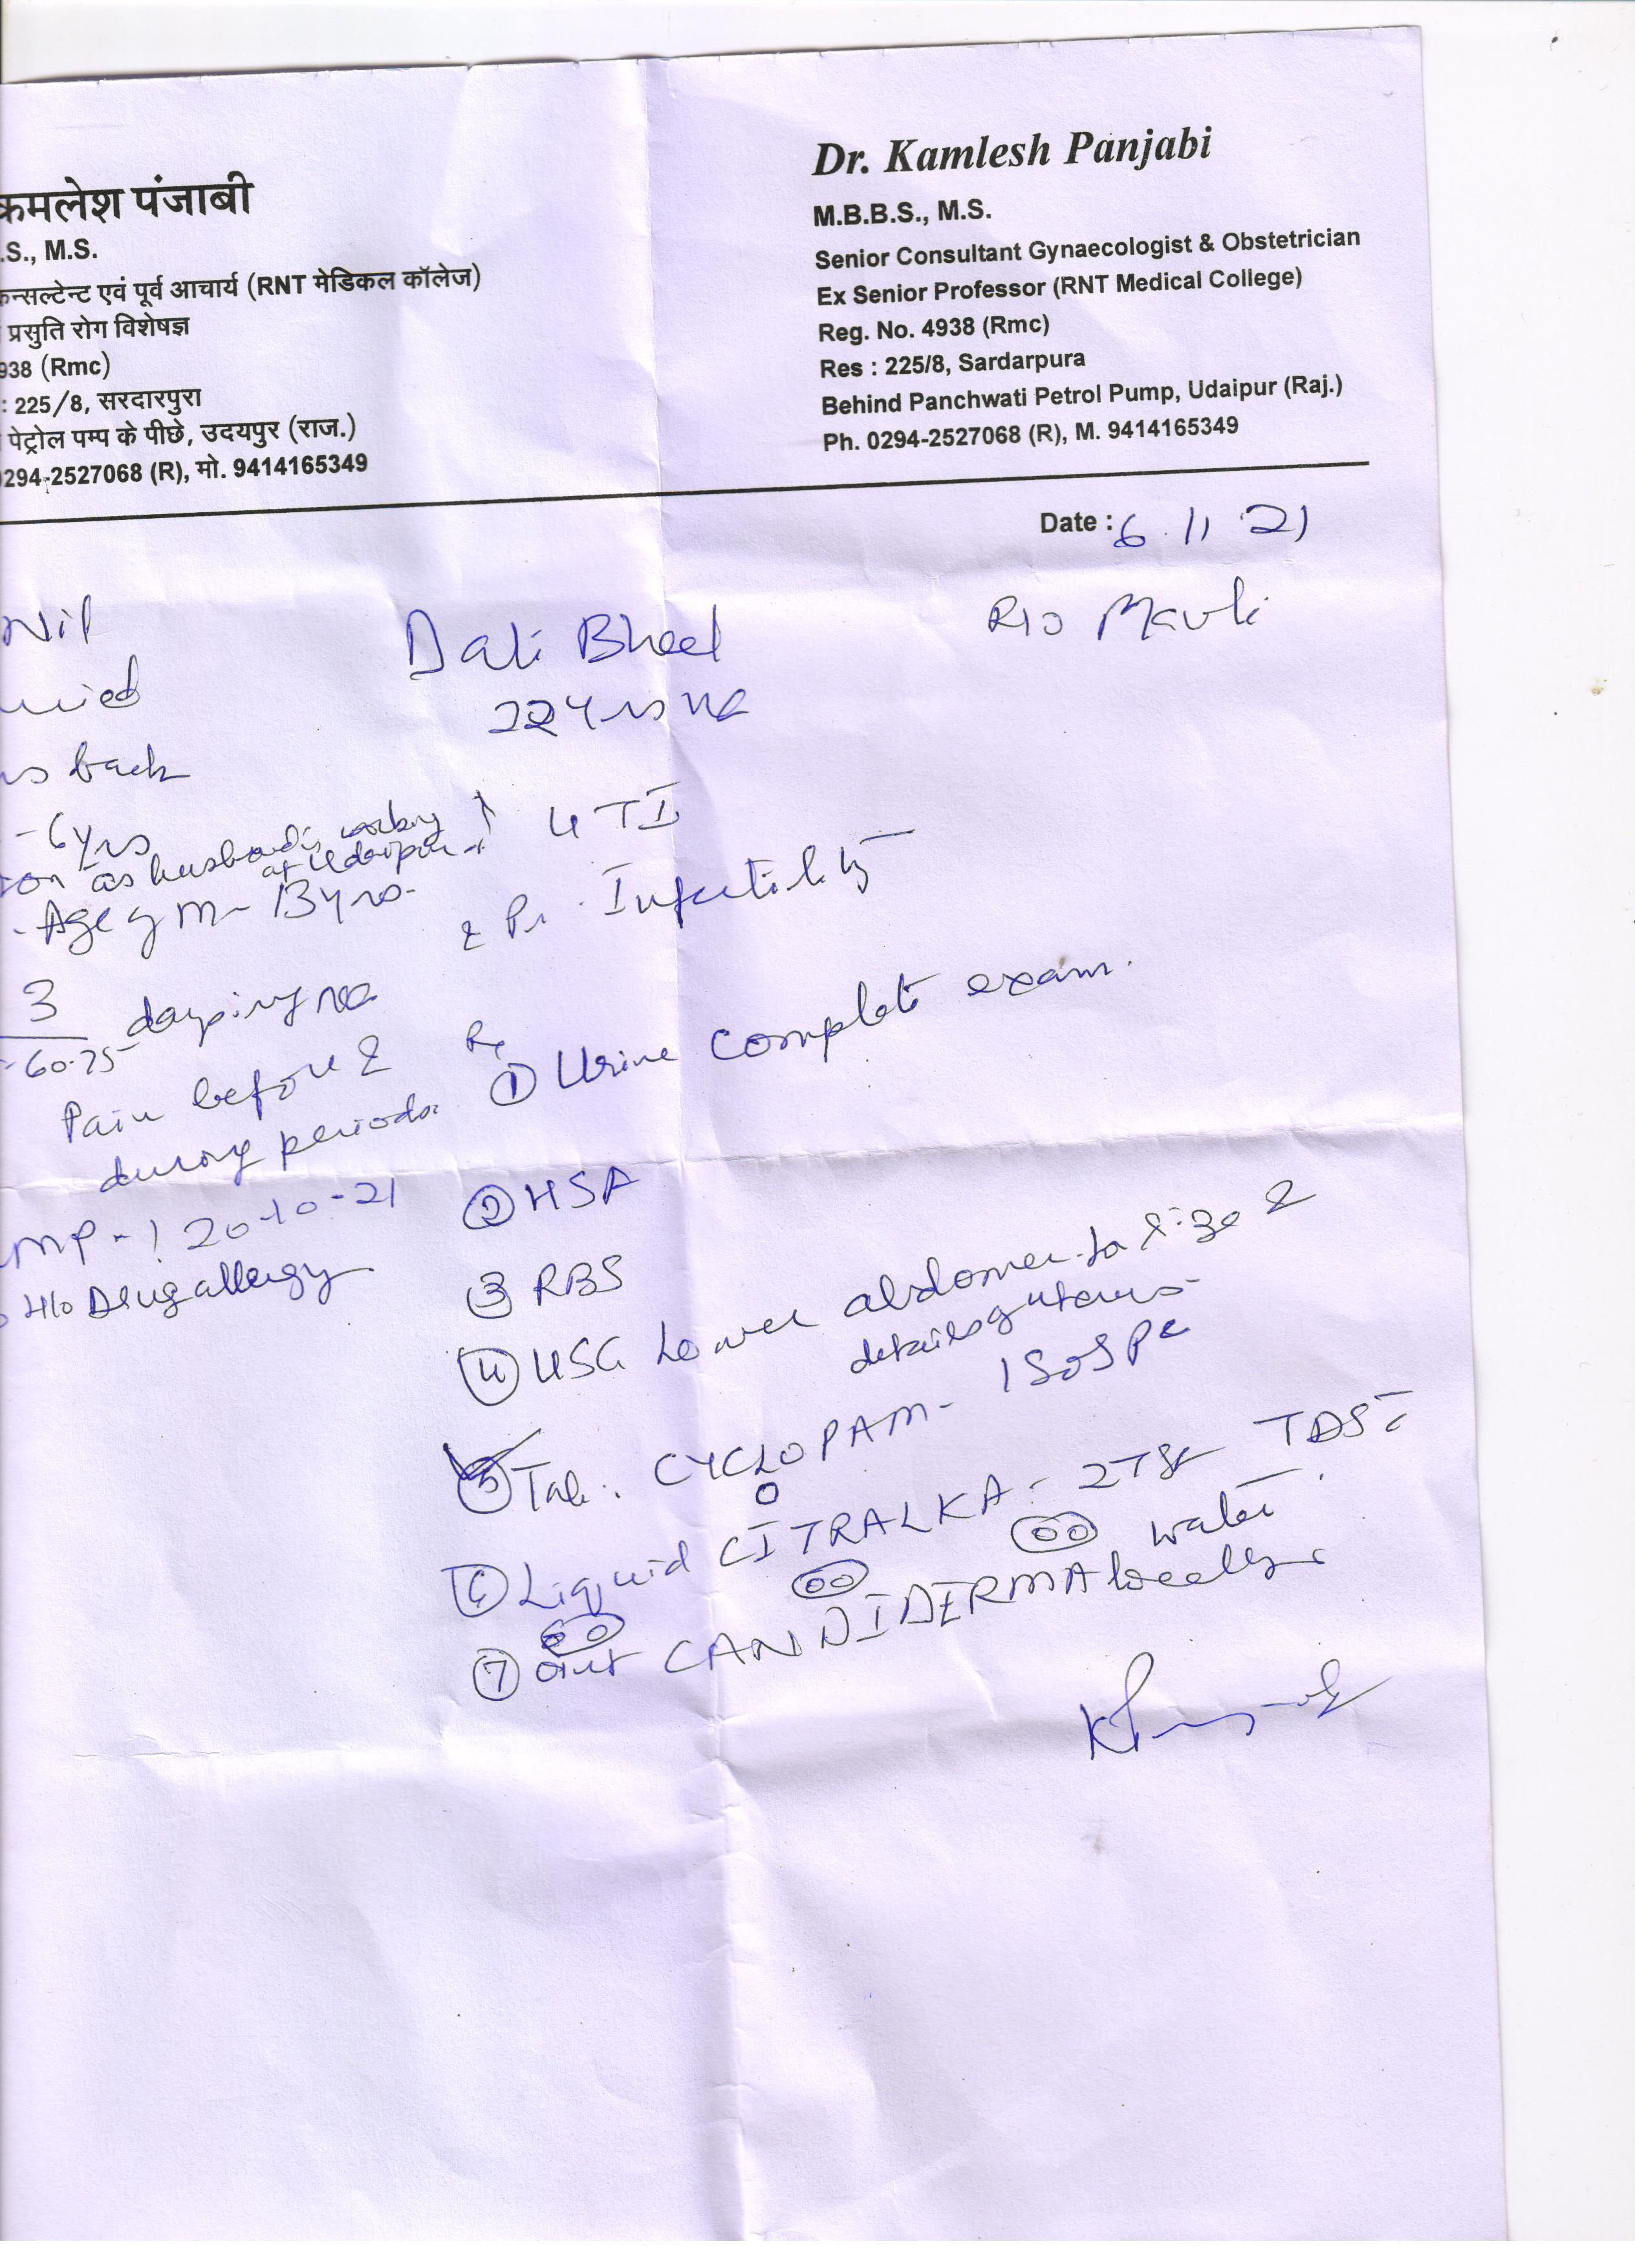 कमलेश पंजाबी
.S., M.S.
कन्सल्टेन्ट एवं पूर्व आचार्य (RNT मेडिकल कॉलेज)
प्रसुति रोग विशेषज्ञ
938 (Rmc)
: 225/8, सरदारपुरा
पेट्रोल पम्प के पीछे, उदयपुर (राज.)
0294-2527068 (R), मो. 9414165349
Dr. Kamlesh Panjabi
M.B.B.S., M.S.
Senior Consultant Gynaecologist & Obstetrician
Ex Senior Professor (RNT Medical College)
Reg. No. 4938 (Rmc)
Res : 225/8, Sardarpura
Behind Panchwati Petrol Pump, Udaipur (Raj.)
Ph. 0294-2527068 (R), M. 9414165349
Date : 6.11.21
Nil
back
- 6yrs
as husband is working
at Udaipur
- Age of M - 13 yrs.
3
60-75
Pain before &
during periods.
MP - 20-10-21
H/o Drug allergy
Dali Bheel
R/o Mavli
22 Yrs
UTI
& Pr. Infertility
Rx
① Urine complete exam.
② HSA
③ RBS
④ USG Lower abdomen for size &
details of uterus
⑤ Tab. CYCLOPAM - 1 SOS
⑥ Liquid CITRALKA - 2 TSF TDS
water
⑦ Oint CANDIDERMA locally